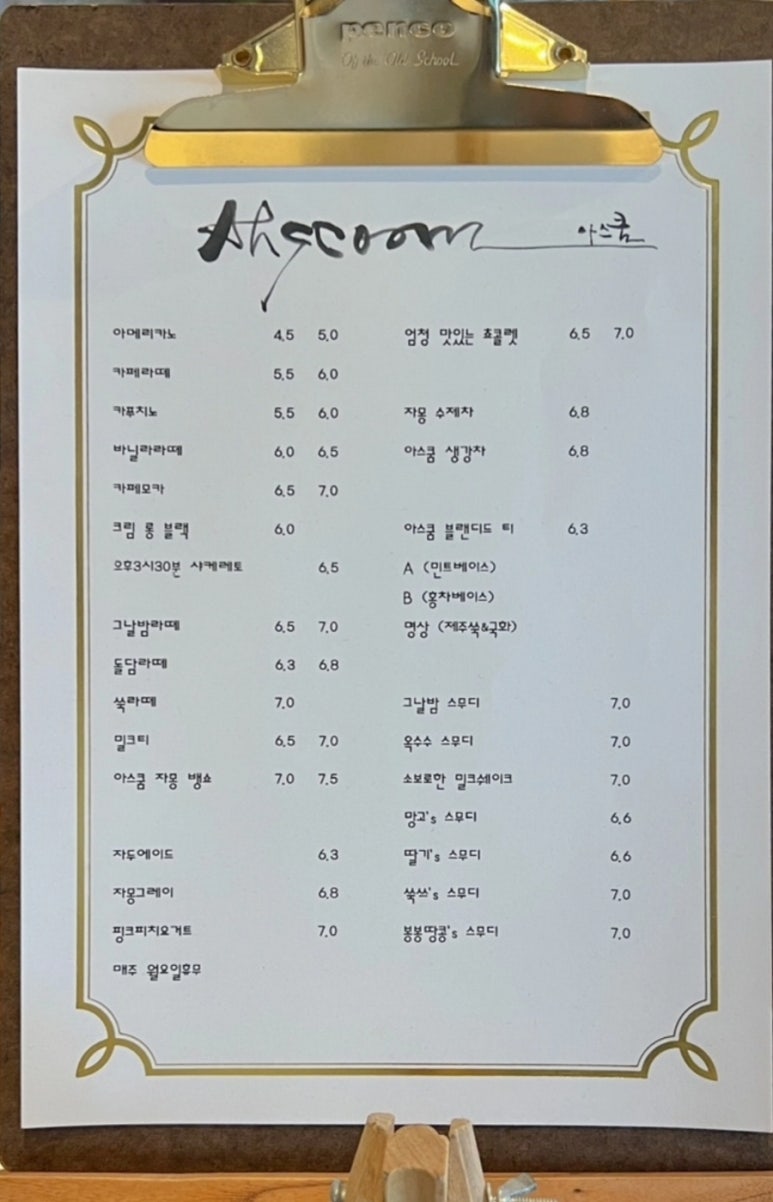 penco
Of the Old School.
Ahscoom 아스쿰
아메리카노 4.5 5.0
카페라떼 5.5 6.0
카푸치노 5.5 6.0
바닐라라떼 6.0 6.5
카페모카 6.5 7.0
크림 롱 블랙 6.0
오후3시30분 샤케레토 6.5
그날밤라떼 6.5 7.0
돌담라떼 6.3 6.8
쑥라떼 7.0
밀크티 6.5 7.0
아스쿰 자몽 뱅쇼 7.0 7.5
자두에이드 6.3
자몽그레이 6.8
핑크피치요거트 7.0
매주 월요일휴무
엄청 맛있는 쵸콜렛 6.5 7.0
자몽 수제차 6.8
아스쿰 생강차 6.8
아스쿰 블랜디드 티 6.3
A (민트베이스)
B (홍차베이스)
명상 (제주쑥&국화)
그날밤 스무디 7.0
옥수수 스무디 7.0
소보로한 밀크쉐이크 7.0
망고's 스무디 6.6
딸기's 스무디 6.6
쑥쓰's 스무디 7.0
봉봉땅콩's 스무디 7.0